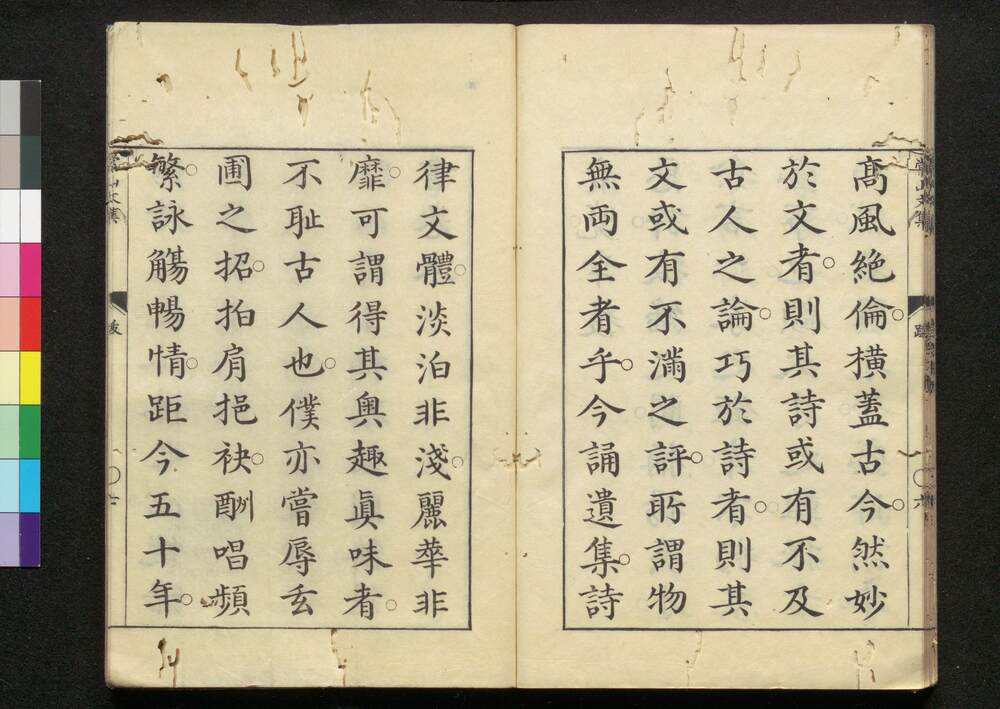 髙風絶倫。橫蓋古今。然妙
於文者。則其詩或有不及
古人之論。巧於詩者。則其
文或有不滿之評。所謂物
無両全者乎。今誦遺集。詩
律文體。淡泊非淺。麗華非
靡。可謂得其奧趣眞味者。
不耻古人也。僕亦嘗辱玄
圃之招。拍肩挹袂。酬唱頻
繁。詠觴暢情。距今五十年。